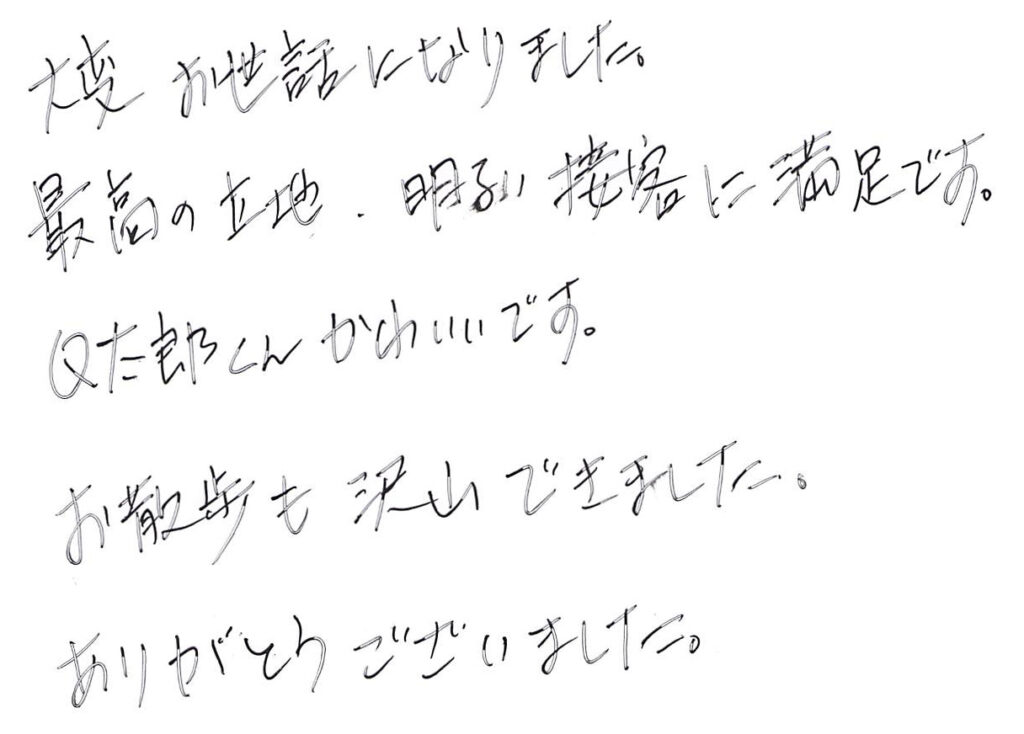 大変 お世話になりました。
最高の立地・明るい接客に満足です。
Q太郎くんかわいいです。
お散歩も沢山できました。
ありがとうございました。